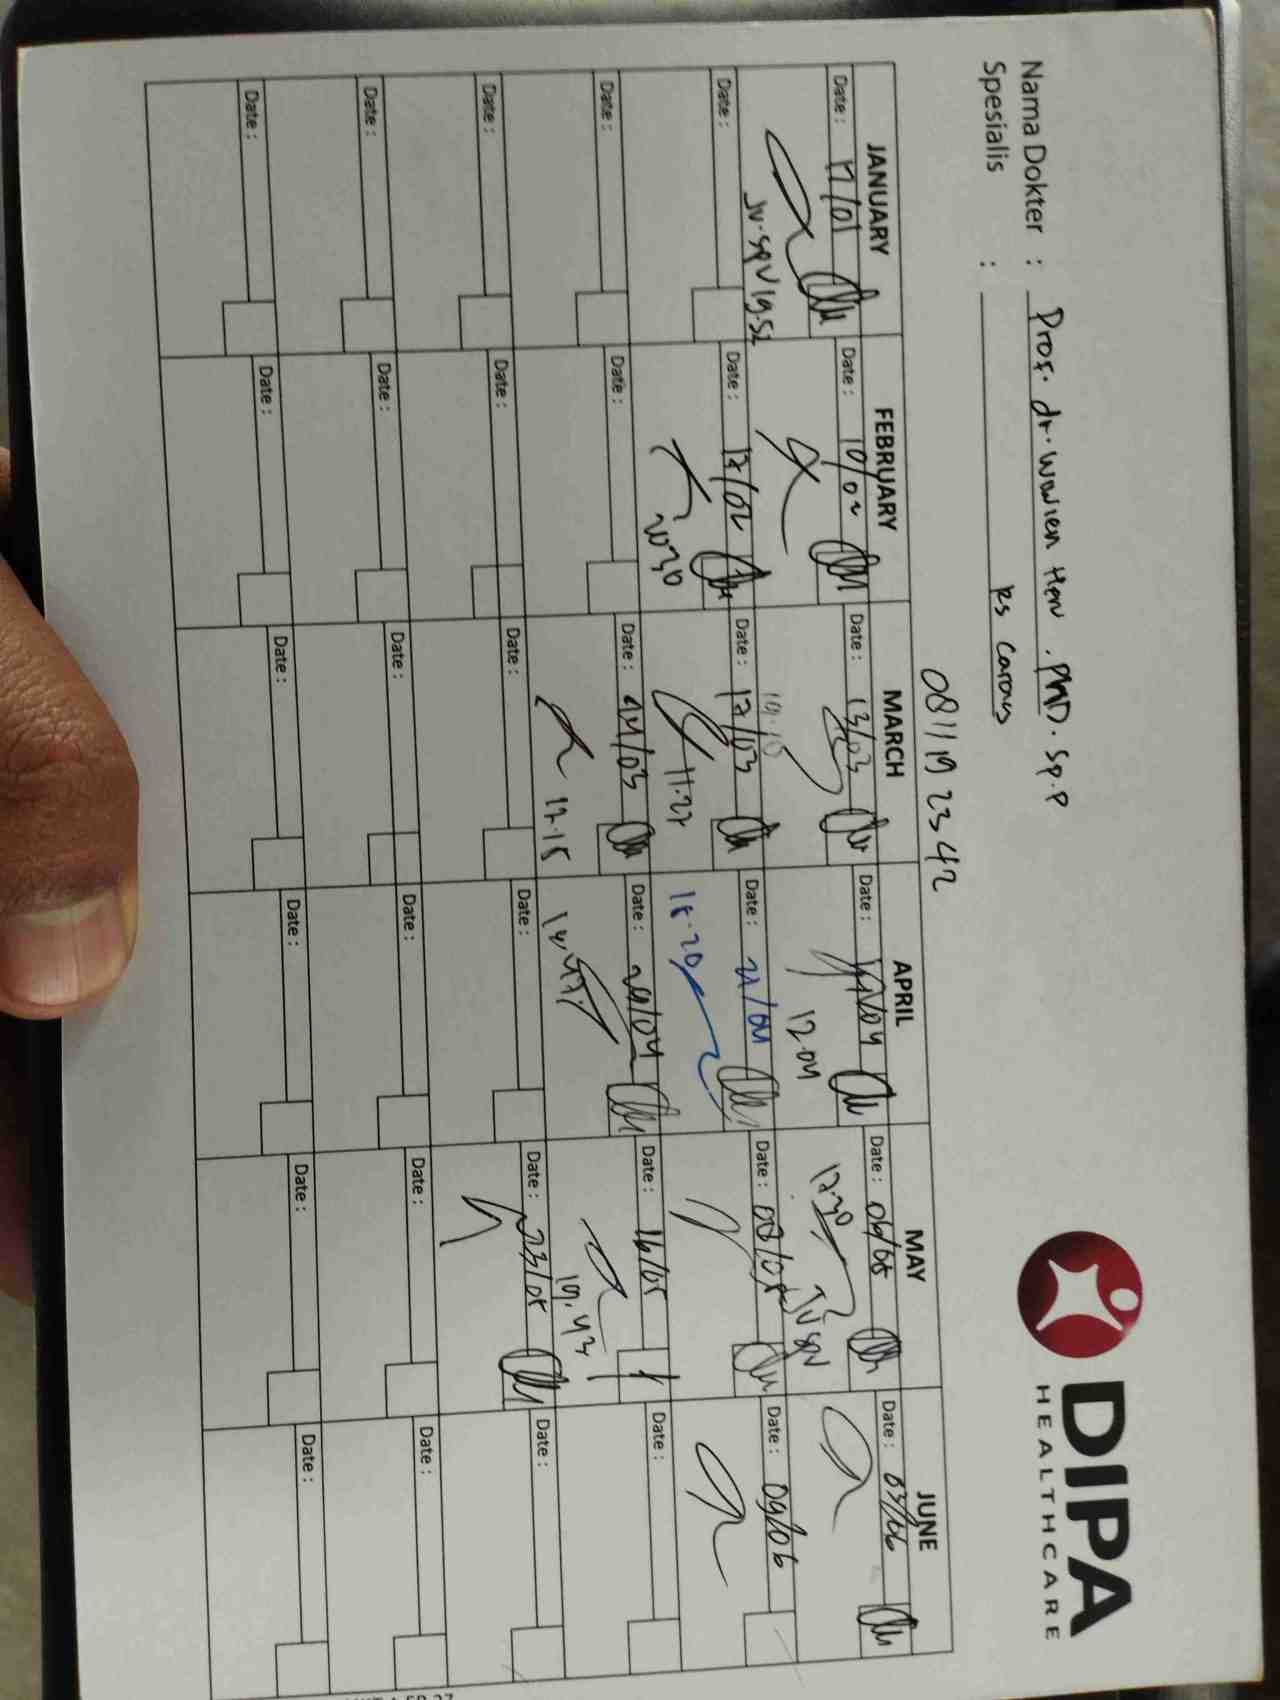 DIPA
HEALTHCARE
Nama Dokter : Prof. dr. Wiwien Heru . PhD. Sp. P
Spesialis : RS Carolus
0811 19 2342
JANUARY FEBRUARY MARCH APRIL MAY JUNE
Date : 17/01 Date : 10/02 Date : 13/03 Date : /04 Date : 06/05 Date : 03/06
JV. SPV 19.52 19.10 12.04 17.30 JV SPV
Date : Date : 17/02 Date : 17/03 Date : 21/04 Date : 08/05 Date : 09/06
20.30 11.27 18.20
Date : Date : Date : 24/03 Date : 29/04 Date : 16/05 Date :
17.15 19.43
Date : Date : Date : Date : Date : 23/05 Date :
Date : Date : Date : Date : Date : Date :
Date : Date : Date : Date : Date : Date :